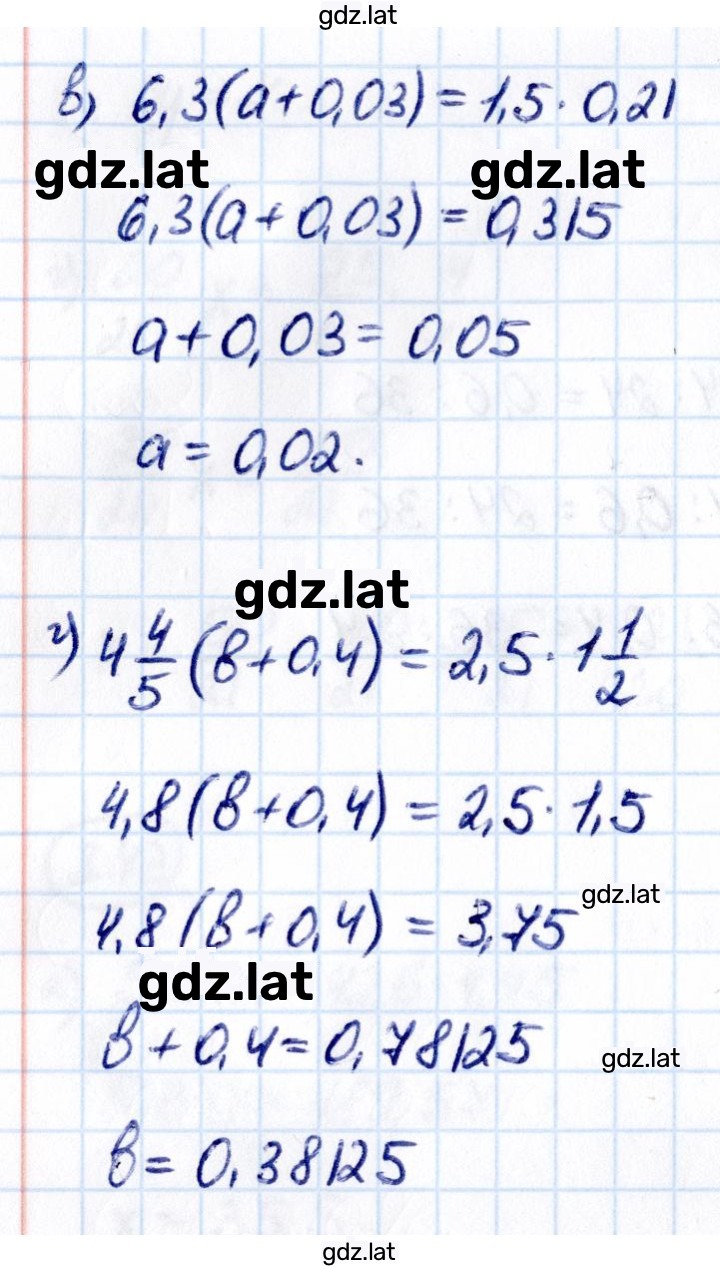 gdz.lat
в) 6,3(a+0,03) = 1,5 · 0,21
gdz.lat gdz.lat
6,3(a+0,03) = 0,315
a+0,03 = 0,05
a = 0,02.
gdz.lat
г) 4 4/5 (в+0,4) = 2,5 · 1 1/2
4,8(в+0,4) = 2,5 · 1,5
gdz.lat
4,8(в+0,4) = 3,75
gdz.lat
в+0,4 = 0,78125
gdz.lat
в = 0,38125
gdz.lat